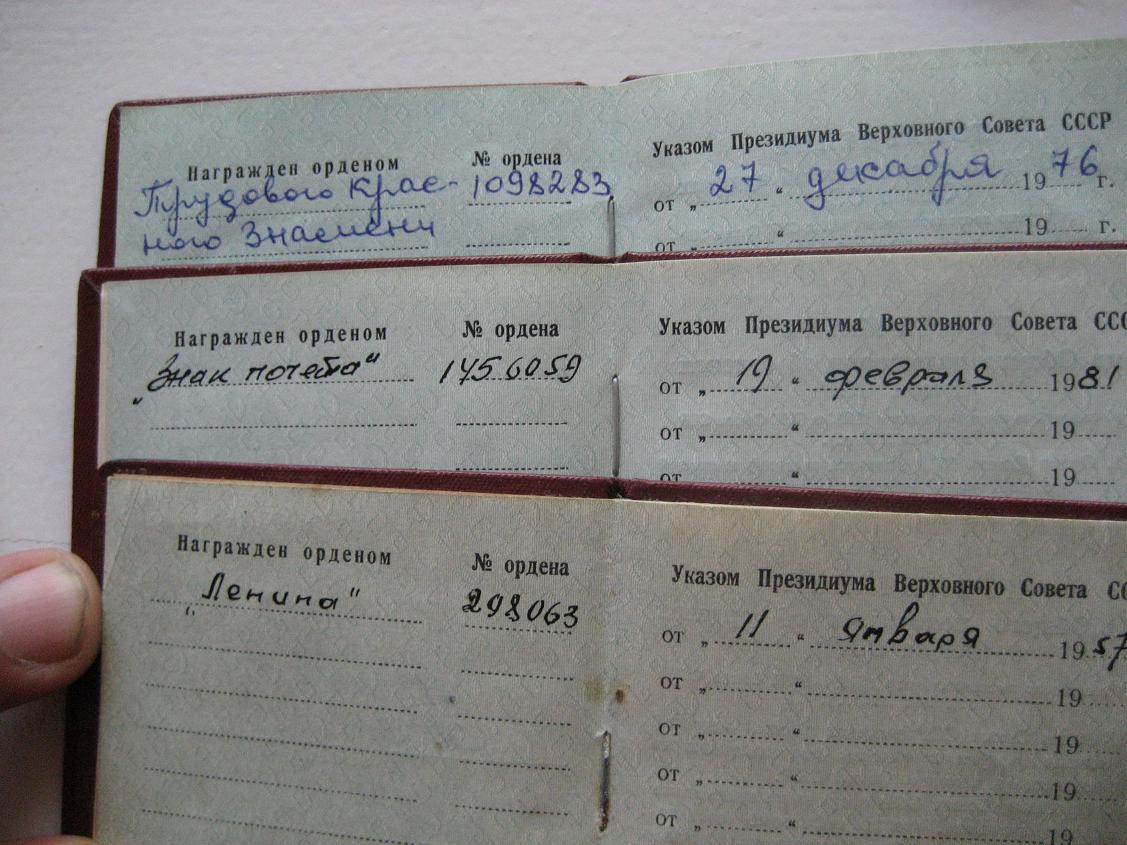 Награжден орденом № ордена Указом Президиума Верховного Совета СССР
Трудового Крас- 1098283 от „ 27 “ декабря 1976 г.
ного Знамени от „ “ 19 г.
Награжден орденом № ордена Указом Президиума Верховного Совета ССС
„Знак почета“ 1456059 от „ 19 “ февраля 1981
от „ “ 19
от „ “ 19
Награжден орденом № ордена Указом Президиума Верховного Совета СС
"Ленина" 298063 от „ 11 “ января 1957
от „ “ 19
от „ “ 19
от „ “ 19
от „ “ 19
от „ “ 19